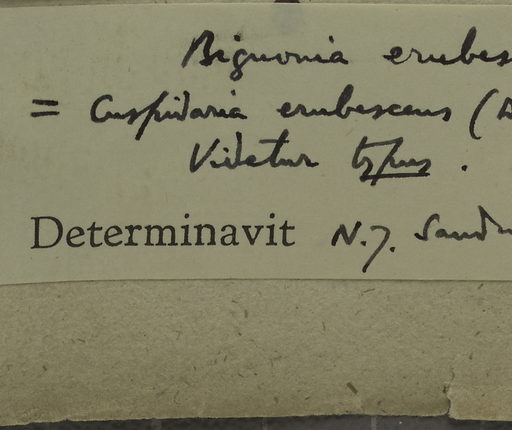 Bignonia erubes
= Cuspidaria erubescens (
Videtur typus.
Determinavit N.J. Sandw